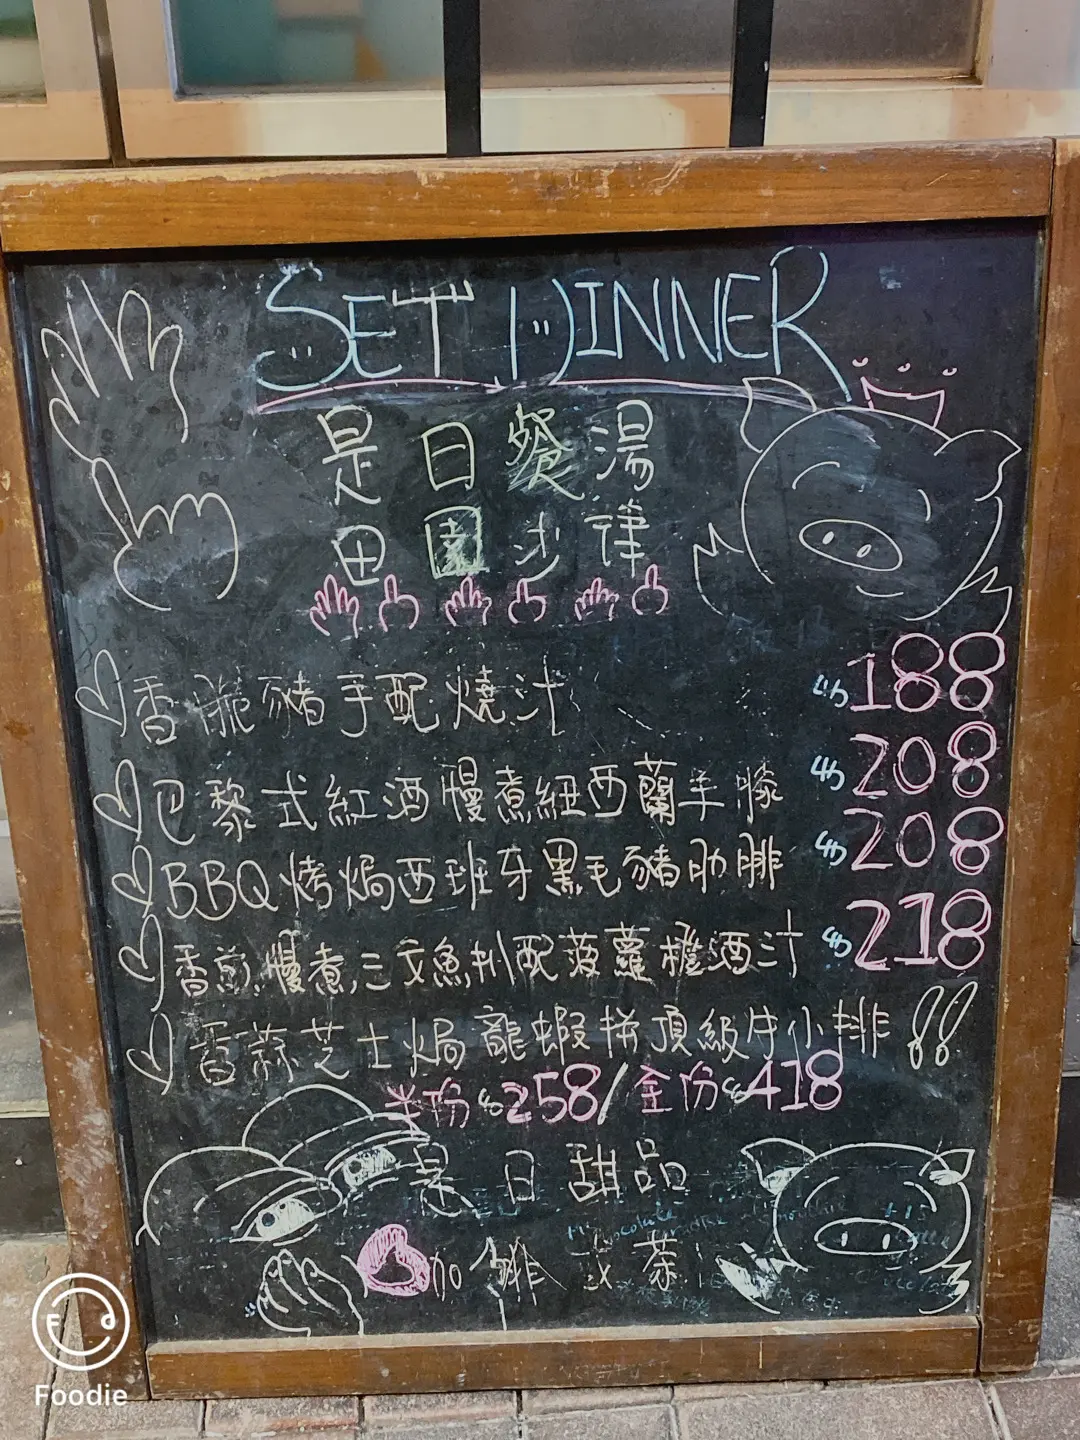 SET DINNER
是日餐湯
田園沙律
香脆豬手配燒汁 $188
巴黎式紅酒慢煮紐西蘭羊膝 $208
BBQ烤焗西班牙黑毛豬肋排 $208
香煎慢煮三文魚扒配菠蘿橙酒汁 $218
香蒜芝士焗龍蝦拼頂級牛小排!!
半份$258/全份$418
是日甜品
咖啡 或 茶
Foodie